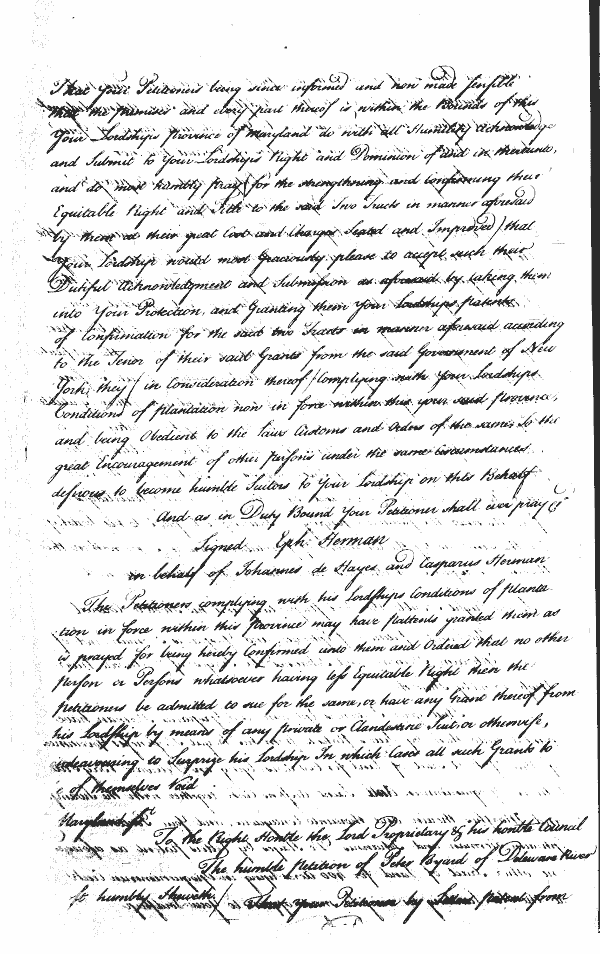 That your Petitioners being since informed and now made sensible
that the premises and every part thereof is within the Bounds of this
Your Lordships province of Maryland do with all Humility acknowledge
and Submit to Your Lordships Right and Dominion of and in thereunto,
and do most humbly pray (for the strengthning and Confirming their
Equitable Right and Title to the said Two Tracts in manner aforesaid
by them at their great Cost and Charges Seated and Improved) that
Your Lordship would most Graciously please to accept such their
Dutiful Acknowledgment and Submission as aforesaid by taking them
into Your Protection, and Granting them Your Lordships patents
of Confirmation for the said two Tracts in manner aforesaid according
to the Tenor of their said Grants from the said Government of New
York, they (in Consideration thereof) Complying with Your Lordships
Conditions of plantation now in force within this your said province,
and being Obedient to the Laws Customs and Orders of the same, To the
great Encouragement of other persons under the same circumstances
desirous to become humble Suitors to Your Lordship on this Behalf
And as in Duty Bound Your Petitioner shall ever pray &c
Signed Eph Herman
in behalf of Johannes de Hayes and Casparus Herman
The Petitioners complying with his Lordships Conditions of planta
tion in force within this Province may have Pattents granted them as
is prayed for being hereby Confirmed unto them and Ordered that no other
Person or Persons whatsoever having less Equitable Right then the
petitioners be admitted to sue for the same, or have any Grant thereof from
his Lordship by means of any private or Clandestine Suit, or otherwise,
endeavouring to Surprize his Lordship In which Cases all such Grants to
be of themselves Void
Maryland ss.
To the Right Honble the Lord Proprietary & his honble Council
The humble Petition of Peter Byard of Delaware River
humbly Sheweth/ That your Petitioner by patent from